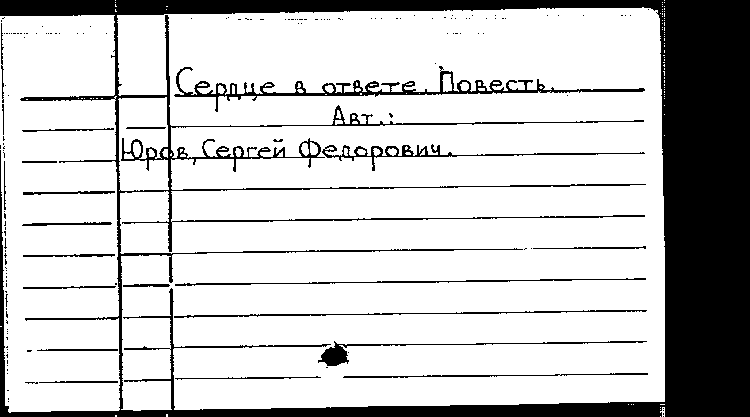 Сердце в ответе. Повесть.
Авт.:
Юров, Сергей Федорович.